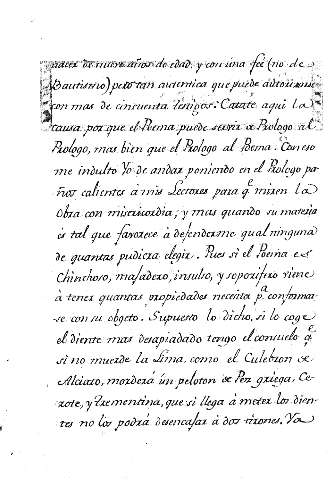 nacer de nueve años de edad, y con una feé (no de
Bautismo) pero tan autentica que puede
con mas de cincuenta testigos: Catate aqui la
causa, por que el Poema, puede servir de Prologo al
Prologo, mas bien que el Prologo al Poema. Con eso
me indulto Yo de andar poniendo en el Prologo pa-
ños calientes à mis Lectores para q.e miren la
Obra con misericordia; y mas quando su materia
es tal que favorece à defenderme qual ninguna
de quantas pudiera elegir. Pues si el Poema es
Chinchoso, majadero, insulso, y soporifero viene
à tener quantas propiedades necesita p.a conformar-
se con su objeto. Supuesto lo dicho, si lo coge
el diente mas desapiadado tengo el consuelo q.e
si no muerde la Lima, como el Culebron de
Alciato, morderá ún peloton de Pez griega, Ce-
rote, y Trementina, que si llega à meter los dien-
tes no los podrà desencajar à dos tirones. Ya